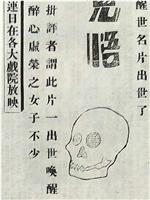 醒世名片出世了
悟
批評者謂此片一出世喚醒
醉心虛榮之女子不少
連日在各大戲院放映